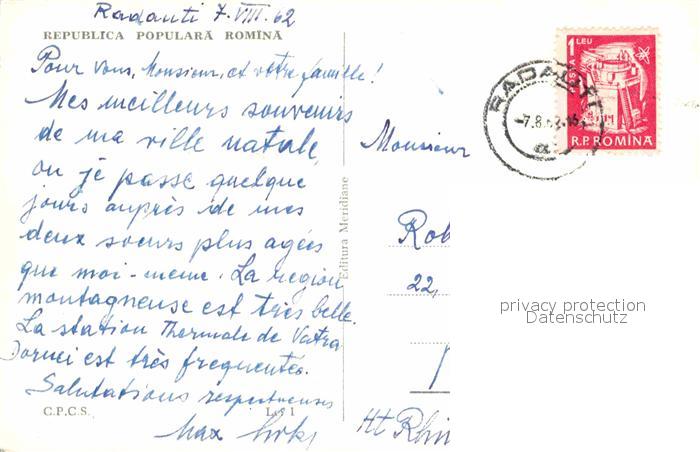 Radauti 7.VIII.62
REPUBLICA POPULARĂ ROMÎNĂ
Pour vous, Monsieur, et votre famille!
Mes meilleurs souvenirs
de ma ville natale,
ou je passe quelque
jours auprès de mes
deux soeurs plus agées
que moi-meme. La region
montagneuse est très belle.
La station Thermale de Vatra
Dornei est très frequentée.
Salutations respectueuses
Max
C.P.C.S.
Lei 1
Editura Meridiane
1 LEU
R.P. ROMÎNA
RADAUTI
-7.8.62
a
Monsieur
Rob
22,
Ht Rhin
privacy protection
Datenschutz